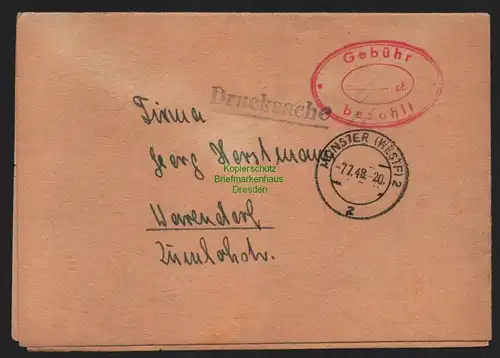 Gebühr
bezahlt
Drucksache
Firma
Georg Horstmann
Warendorf
Zumlohstr.
MÜNSTER (WESTF) 2
-7.7.48.-20.
z
Kopierschutz
Briefmarkenhaus
Dresden